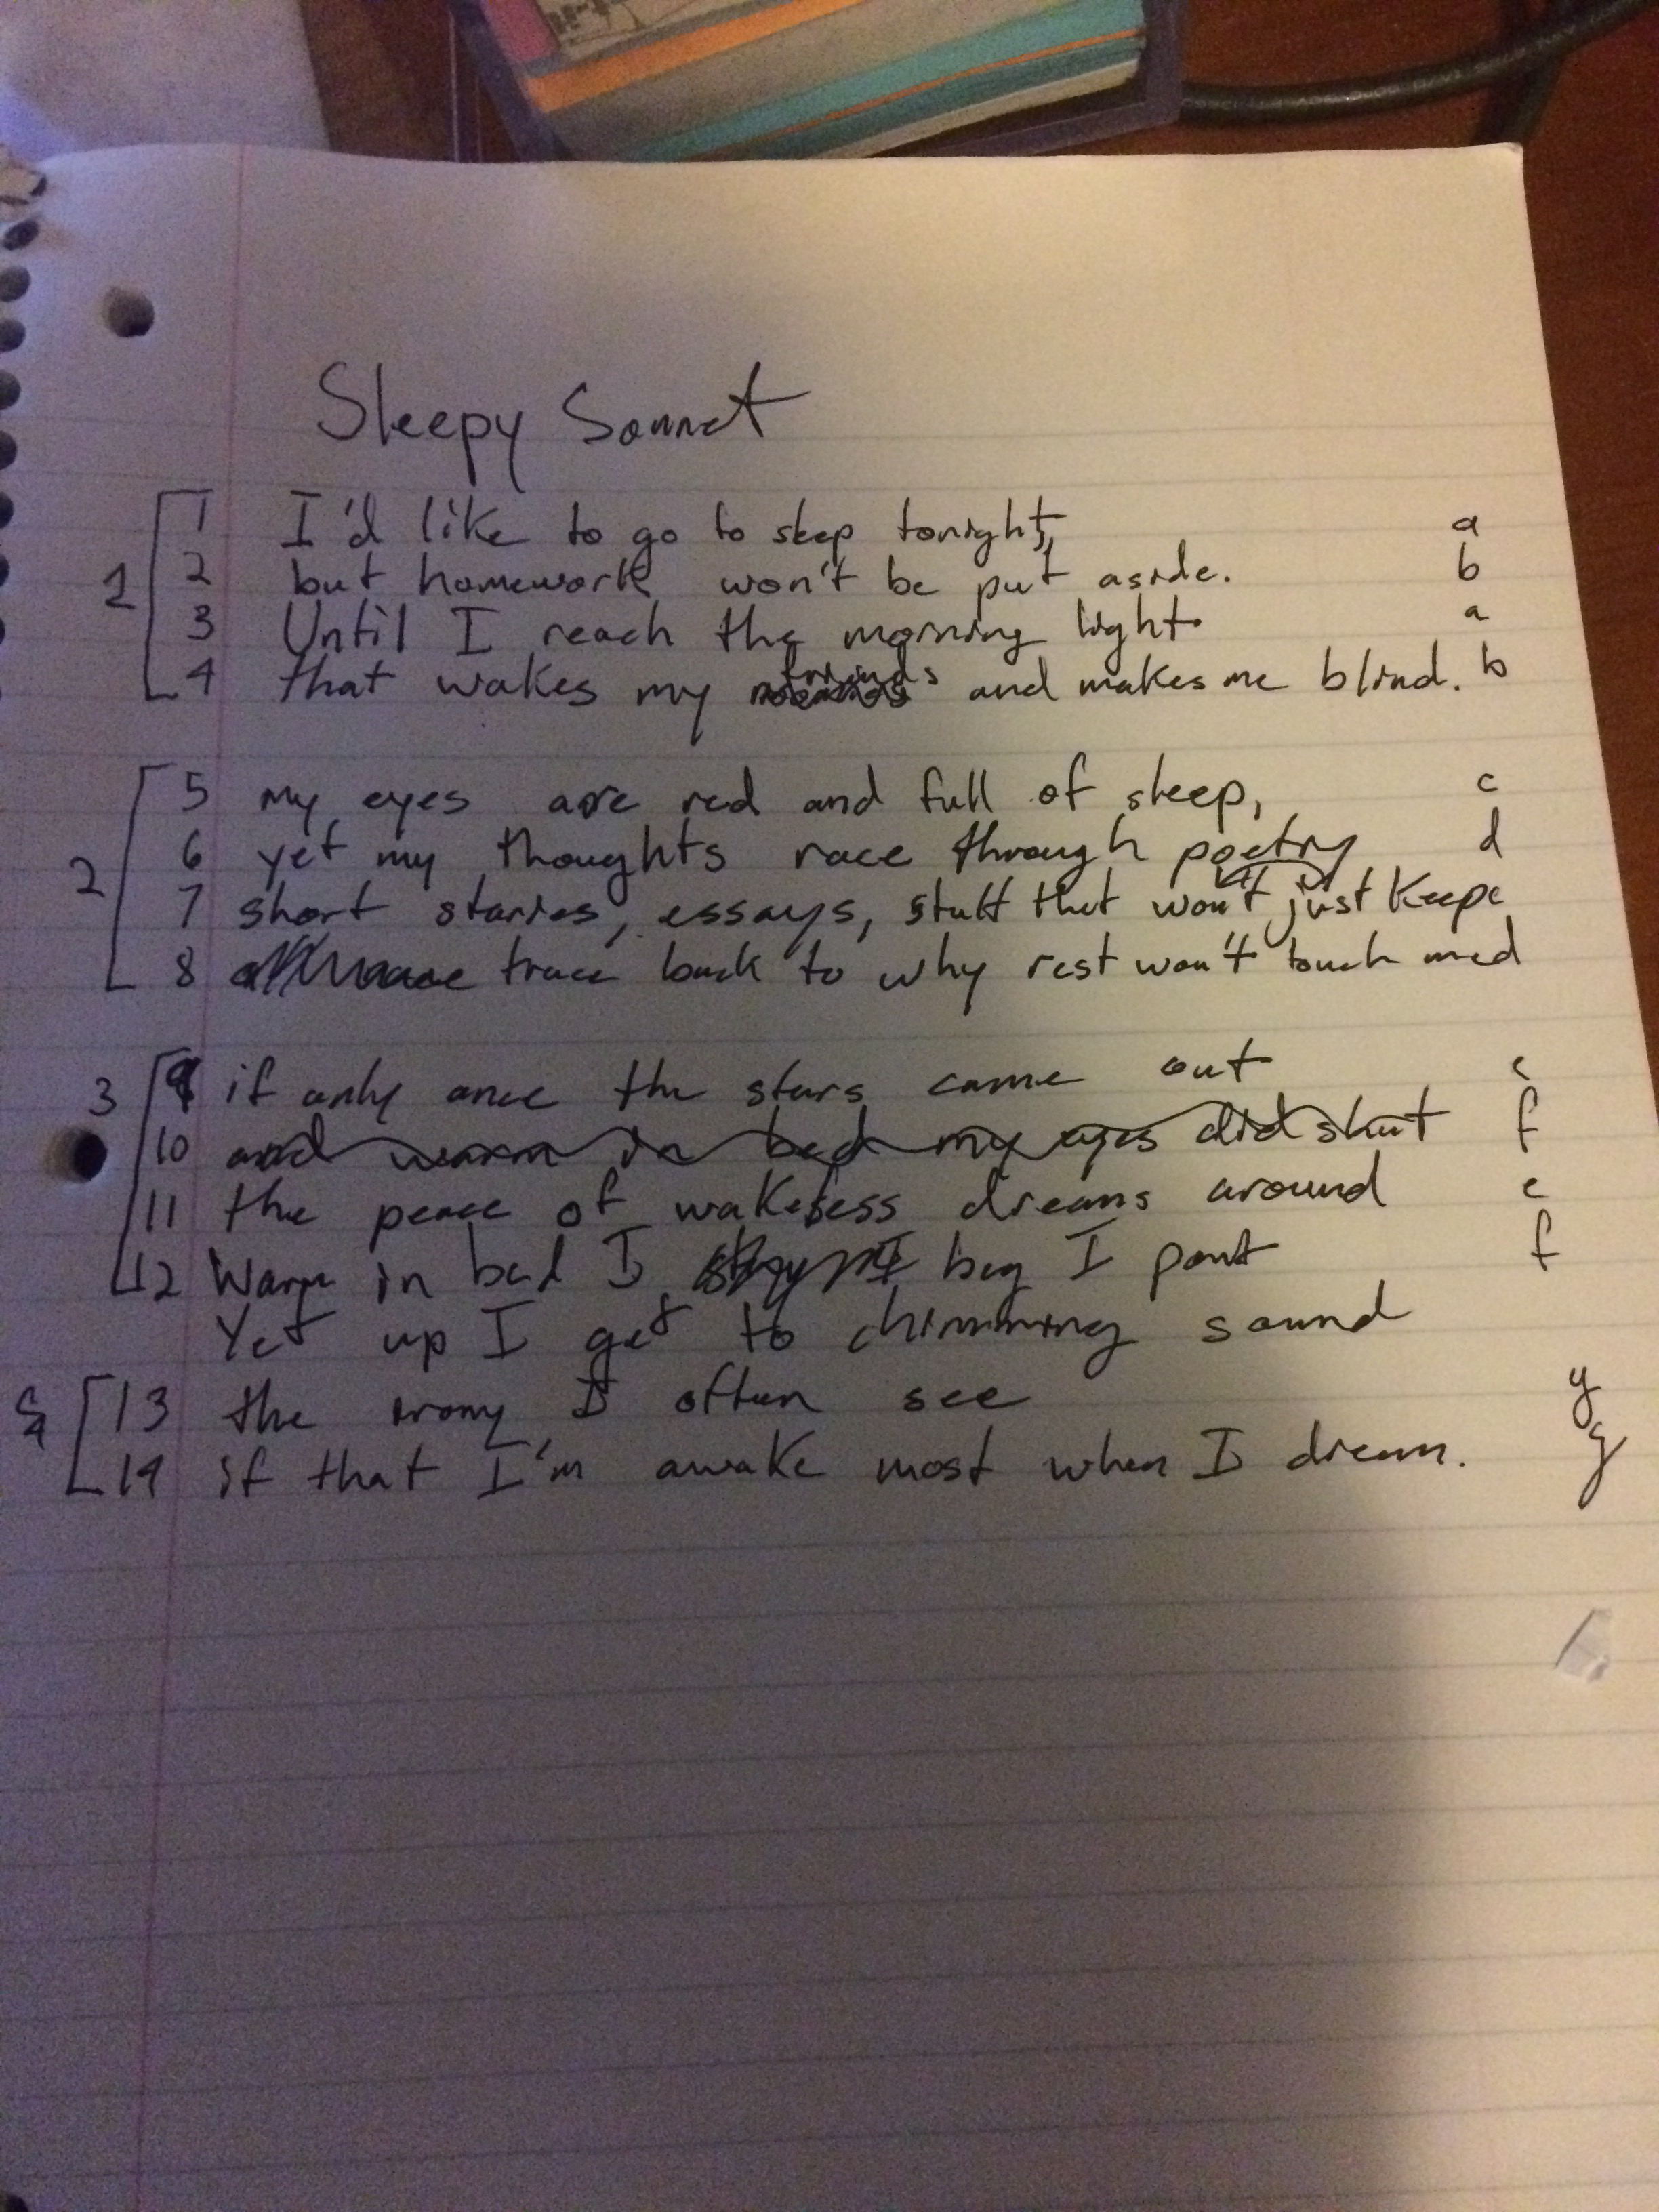 Sleepy Sonnet
1 I'd like to go to sleep tonight, a
2 but homework won't be put aside. b
1 3 Until I reach the morning light a
4 that wakes my friends and makes me blind. b
5 my eyes are red and full of sleep, c
6 yet my thoughts race through poetry d
2 7 short stories, essays, stuff that won't just keep c
8 trace back to why rest won't touch me d
3 9 if only once the stars came out e
10 and warm in bed my eyes did shut f
11 the peace of wakeless dreams around e
12 Warm in bed I beg I pout f
Yet up I get to chimming sound
4 13 the irony I often see g
14 if that I'm awake most when I dream. g